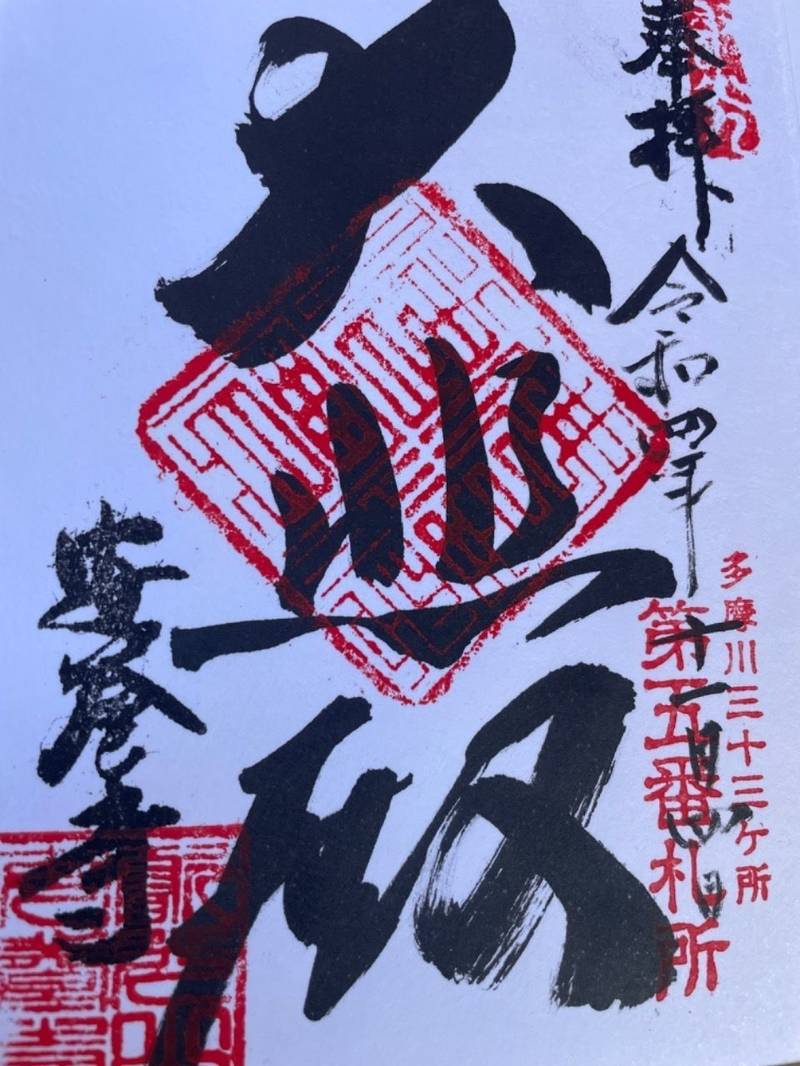 奉拝
令和四年十一月四日
多摩川三十三ヶ所
第五番札所
大悲殿
安養寺